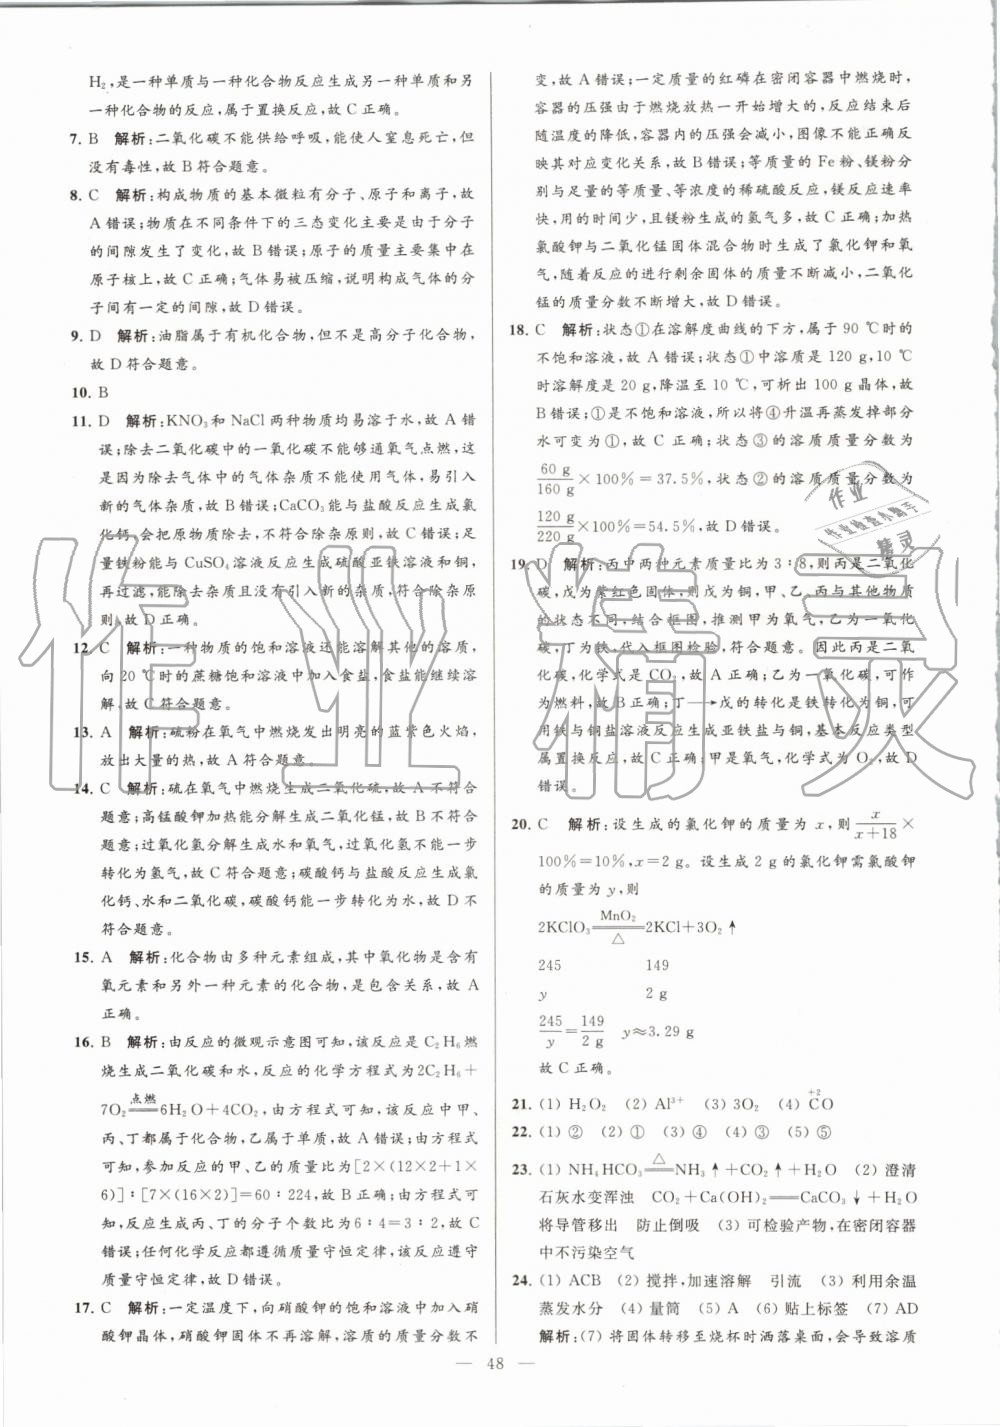 H₂,是一种单质与一种化合物反应生成另一种单质和另
一种化合物的反应,属于置换反应,故 C 正确。
7. B 解析:二氧化碳不能供给呼吸,能使人窒息死亡,但
没有毒性,故 B 符合题意。
8. C 解析:构成物质的基本微粒有分子、原子和离子,故
A 错误;物质在不同条件下的三态变化主要是由于分子
的间隙发生了变化,故 B 错误;原子的质量主要集中在
原子核上,故 C 正确;气体易被压缩,说明构成气体的分
子间有一定的间隙,故 D 错误。
9. D 解析:油脂属于有机化合物,但不是高分子化合物,
故 D 符合题意。
10. B
11. D 解析:KNO₃ 和 NaCl 两种物质均易溶于水,故 A 错
误;除去二氧化碳中的一氧化碳不能够通氧气点燃,
这是因为除去气体中的气体杂质不能使用气体,易引入
新的气体杂质,故 B 错误;CaCO₃ 能与盐酸反应生成氯
化钙,会把原物质除去,不符合除杂原则,故 C 错误;足
量铁粉能与 CuSO₄ 溶液反应生成硫酸亚铁溶液和铜,
再过滤,能除去杂质且没有引入新的杂质,符合除杂原
则,故 D 正确。
12. C 解析:一种物质的饱和溶液还能溶解其他的溶质,
向 20 ℃时的蔗糖饱和溶液中加入食盐,食盐能继续溶
解,故 C 符合题意。
13. A 解析:硫粉在氧气中燃烧发出明亮的蓝紫色火焰,
放出大量的热,故 A 符合题意。
14. C 解析:硫在氧气中燃烧生成二氧化硫,故 A 不符合
题意;高锰酸钾加热能分解生成二氧化锰,故 B 不符合
题意;过氧化氢分解生成水和氧气,过氧化氢不能一步
转化为氢气,故 C 符合题意;碳酸钙与盐酸反应生成氯
化钙、水和二氧化碳,碳酸钙能一步转化为水,故 D 不
符合题意。
15. A 解析:化合物由多种元素组成,其中氧化物是含有
氧元素和另外一种元素的化合物,是包含关系,故 A
正确。
16. B 解析:由反应的微观示意图可知,该反应是 C₂H₆ 燃
烧生成二氧化碳和水,反应的化学方程式为2C₂H₆+
7O₂ =点燃= 6H₂O+4CO₂,由方程式可知,该反应中甲、
丙、丁都属于化合物,乙属于单质,故 A 错误;由方程式
可知,参加反应的甲、乙的质量比为[2×(12×2+1×
6)]∶[7×(16×2)]=60∶224,故 B 正确;由方程式可
知,生成丙、丁的分子个数比为6∶4=3∶2,故 C
错误;任何化学反应都遵循质量守恒定律,该反应遵守
质量守恒定律,故 D 错误。
17. C 解析:一定温度下,向硝酸钾的饱和溶液中加入硝
酸钾晶体,硝酸钾固体不再溶解,溶质的质量分数不
变,故 A 错误;一定质量的红磷在密闭容器中燃烧时,
容器的压强由于燃烧放热一开始增大的,反应结束后
随温度的降低,容器内的压强会减小,图像不能正确反
映其对应变化关系,故 B 错误;等质量的 Fe 粉、镁粉分
别与足量的等质量、等浓度的稀硫酸反应,镁反应速率
快,用的时间少,且镁粉生成的氢气多,故 C 正确;加热
氯酸钾与二氧化锰固体混合物时生成了氯化钾和氧
气,随着反应的进行剩余固体的质量不断减小,二氧化
锰的质量分数不断增大,故 D 错误。
18. C 解析:状态①在溶解度曲线的下方,属于 90 ℃时的
不饱和溶液,故 A 错误;状态①中溶质是 120 g,10 ℃
时溶解度是 20 g,降温至 10 ℃,可析出 100 g 晶体,故
B 错误;①是不饱和溶液,所以将④升温再蒸发掉部分
水可变为①,故 C 正确;状态③的溶质质量分数为
60 g/160 g ×100%=37.5%,状态②的溶质质量分数为
120 g/220 g ×100%=54.5%,故 D 错误。
19. D 解析:丙中两种元素质量比为 3∶8,则丙是二氧化
碳,戊为紫红色固体,则戊为铜,甲、乙、丙与其他物质
的状态不同,结合框图,推测甲为氧气,乙为一氧化
碳,丁为铁,代入框图检验,符合题意。因此丙是二氧
化碳,化学式是 CO₂,故 A 正确;乙为一氧化碳,可作
为燃料,故 B 正确;丁⟶戊的转化是铁转化为铜,可
用铁与铜盐溶液反应生成亚铁盐与铜,基本反应类型
属置换反应,故 C 正确;甲是氧气,化学式为 O₂,故 D
错误。
20. C 解析:设生成的氯化钾的质量为 x,则 x/(x+18) ×
100%=10%,x=2 g。设生成 2 g 的氯化钾需氯酸钾
的质量为 y,则
2KClO₃ =MnO₂/△= 2KCl+3O₂↑
245 149
y 2 g
245/y=149/2 g y≈3.29 g
故 C 正确。
21. (1) H₂O₂ (2) Al³⁺ (3) 3O₂ (4) C⁺²O
22. (1) ② (2) ① (3) ④ (4) ③ (5) ⑤
23. (1) NH₄HCO₃ =△= NH₃↑+CO₂↑+H₂O (2) 澄清
石灰水变浑浊 CO₂+Ca(OH)₂══CaCO₃↓+H₂O
将导管移出 防止倒吸 (3) 可检验产物,在密闭容器
中不污染空气
24. (1) ACB (2) 搅拌,加速溶解 引流 (3) 利用余温
蒸发水分 (4) 量筒 (5) A (6) 贴上标签 (7) AD
解析:(7) 将固体转移至烧杯时洒落桌面,会导致溶质
— 48 —
作业精灵
作业
作业检查小助手
精灵